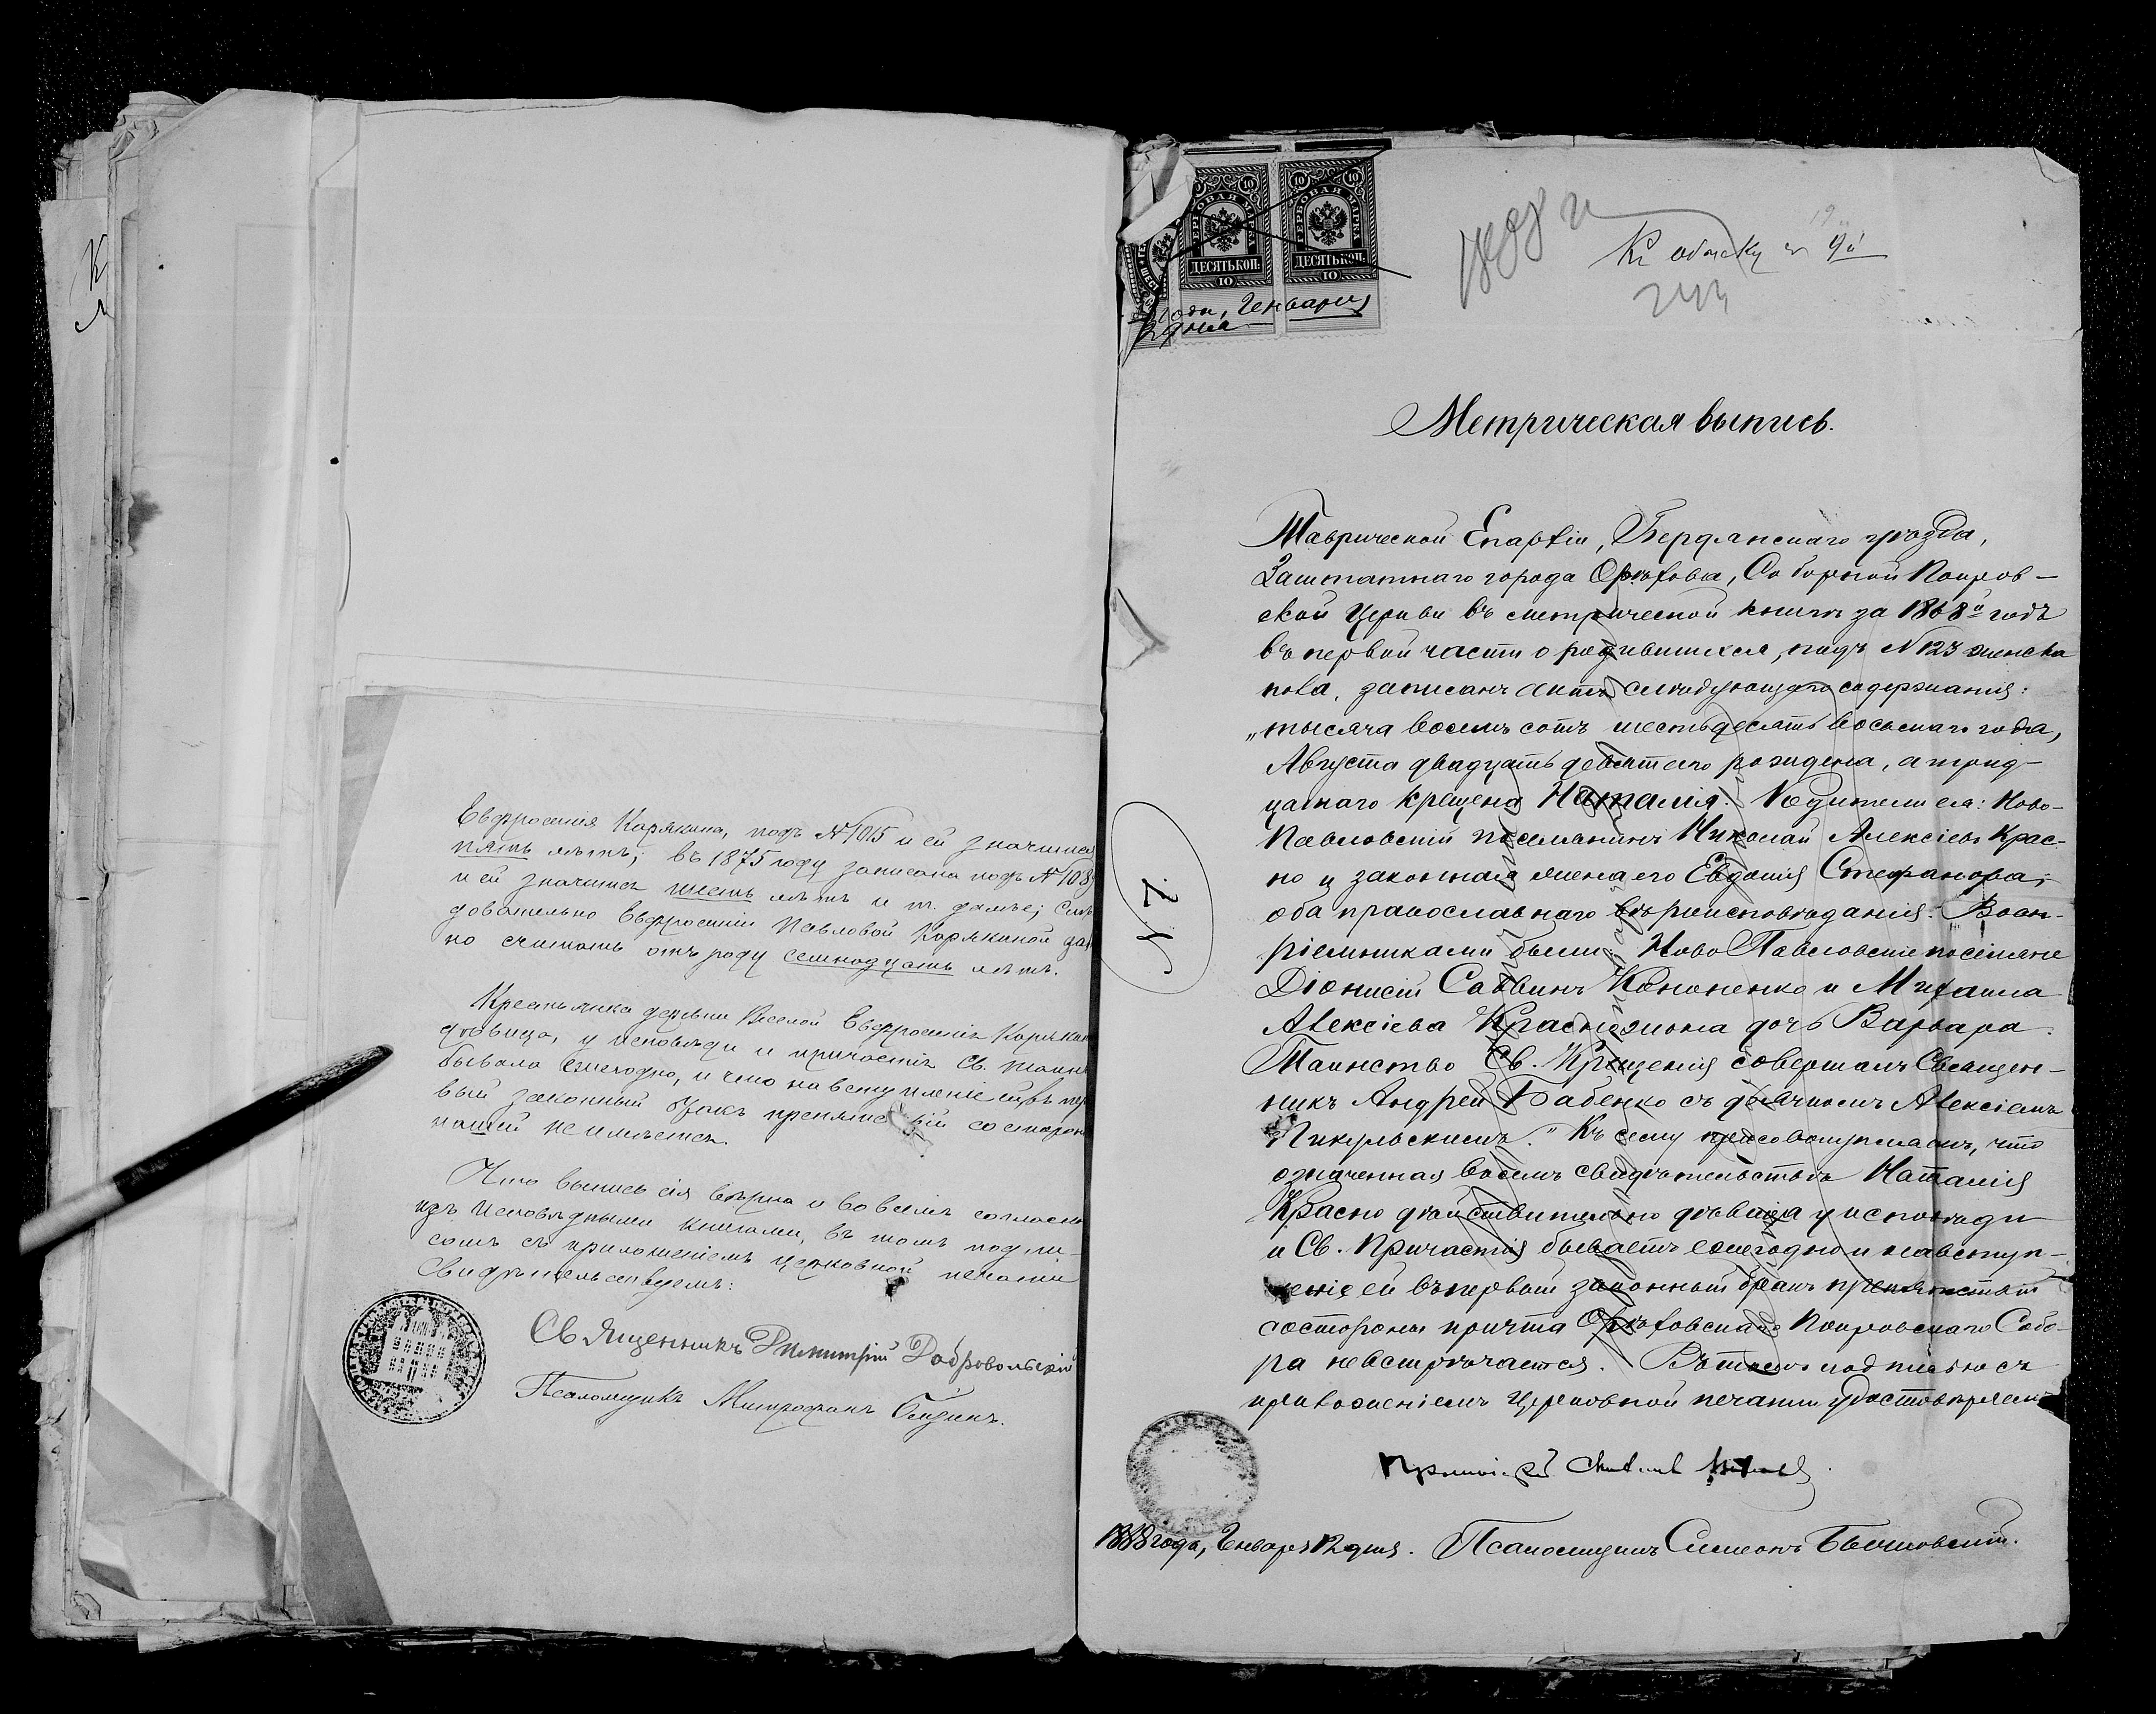 Евфросинія Карякина, подъ №1015 и ей значится
пять лѣтъ; въ 1875 году записана подъ №108
и ей значится шесть лѣтъ и т. далѣе; слѣ
довательно Евфросиніи Павловой Карякиной
но считать отъ роду семнадцать лѣтъ.
Крестьянка деревни Веселой Евфросинія Карякин
дѣвица, у исповѣди и причастія Св. Таин
бывала ежегодно, и что на вступленіе ей, въ пер
вый законный бракъ препятствій со сторон
нашей не имѣется.
Что выпись сія вѣрна и во всемъ согласн
изъ Исповѣдными книгами, въ томъ подпи-
сомъ съ приложеніемъ церковной печати
Свидѣтельствуемъ:
Священникъ Димитрій Добровольскій
Псаломщикъ Митрофанъ
№ 7.
ГЕРБОВАЯ МАРКА ГЕРБОВАЯ МАРКА
10 10 10 10
ДЕСЯТЬ КОП. ДЕСЯТЬ КОП.
10 10
года, Генваря
12 дня
1888 г
Къ обыску № 9й
Метрическая выпись.
Таврической Епархіи, Бердянскаго уѣзда,
Заштатнаго города Орѣхова, Соборной Покров-
ской Церкви въ метрической книгѣ за 1868й годъ
въ первой части о родившихся, подъ №123 женска
пола, записанъ актъ слѣдующаго содержанія:
„тысяча восемь сотъ шестьдесятъ восьмаго года,
Августа двадцать девятаго рождена, а трид-
цатаго крещена Наталія. Родители ея: Ново-
Павловскій поселянинъ Николай Алексіевъ Крас-
но и законная жена его Евдокія Стефанова;
оба православнаго вѣроисповѣданія. Восп-
ріемниками были: Ново Павловскіе поселяне
Діонисій Саввинъ Кононенко и Михаила
Алексіева Красножона дочь Варвара.
Таинство Св. Крещенія совершалъ Священ-
никъ Андрей Бабенко съ дьячкомъ Алексіемъ
Пикульскимъ." Къ сему присовокупляемъ, что
означенная въ семъ свидѣтельствѣ Наталія
Красно дѣйствительно дѣвица у исповѣди
и Св. Причастія бываетъ ежегодно и на вступ-
леніе ей въ первый законный бракъ препятствій
со стороны причта Орѣховскаго Покровскаго Собо-
ра не встрѣчается. Въ томъ подписью съ
приложеніемъ Церковной печати удостовѣряемъ
Протоіерей
1888 года, Генваря 12 дня. Псаломщикъ Симеонъ